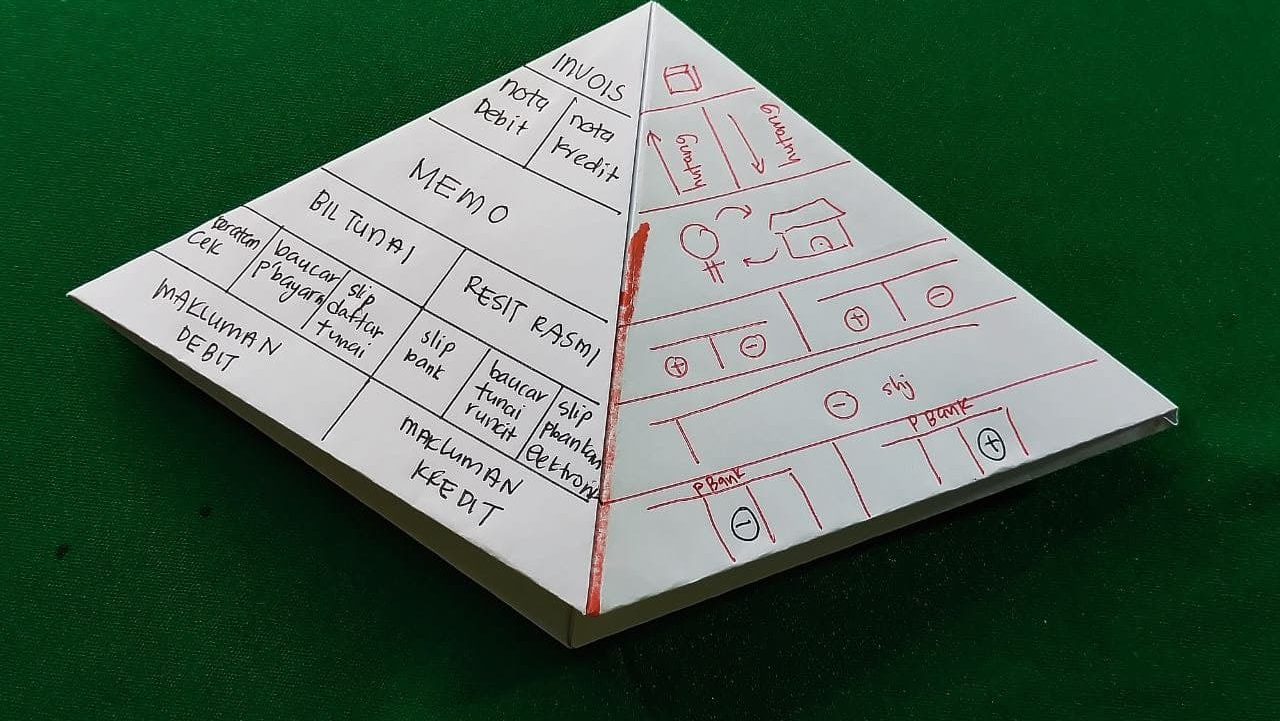 INVOIS
nota
Debit
nota
kredit
MEMO
BIL TUNAI
RESIT RASMI
keratan
cek
baucar
p'bayarn
slip
daftar
tunai
slip
bank
baucar
tunai
runcit
slip
pbankan
elektronik
MAKLUMAN
DEBIT
MAKLUMAN
KREDIT
hutang
hutang
+
-
+
-
- shj
P BANK
-
P BANK
+